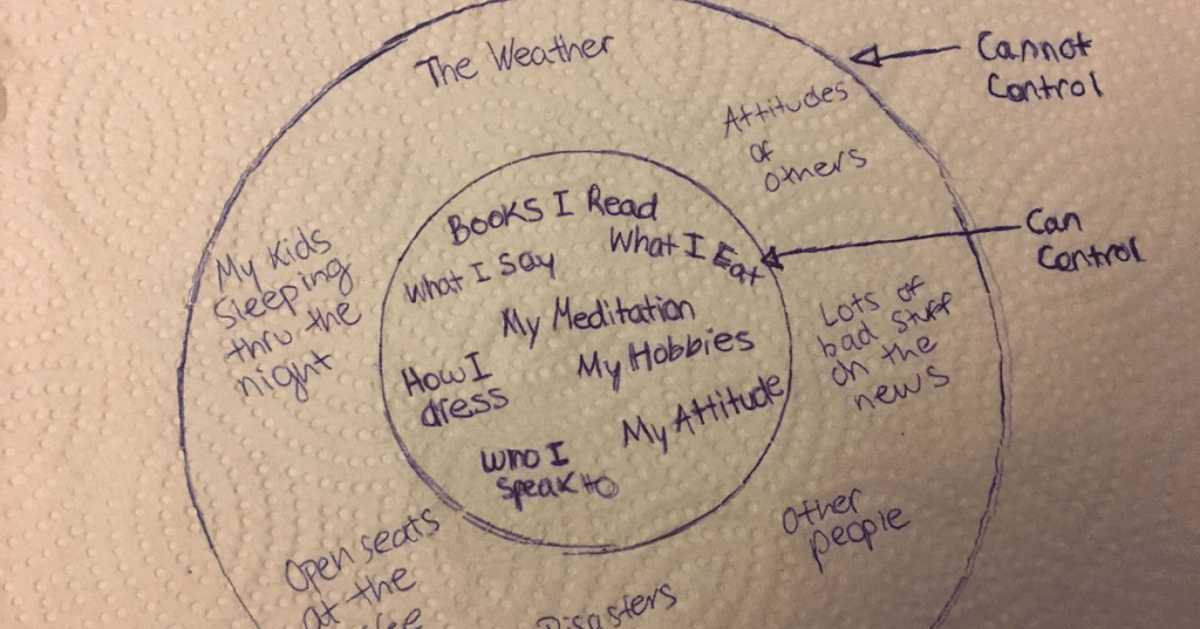 The Weather
Cannot
Control
Attitudes
of
others
Can
Control
Books I Read
What I Eat
What I Say
My Meditation
My Hobbies
How I
dress
My Attitude
Who I
speak to
My Kids
Sleeping
thru the
night
Lots of
bad stuff
on the
news
Other
people
Open seats
at the
Disasters